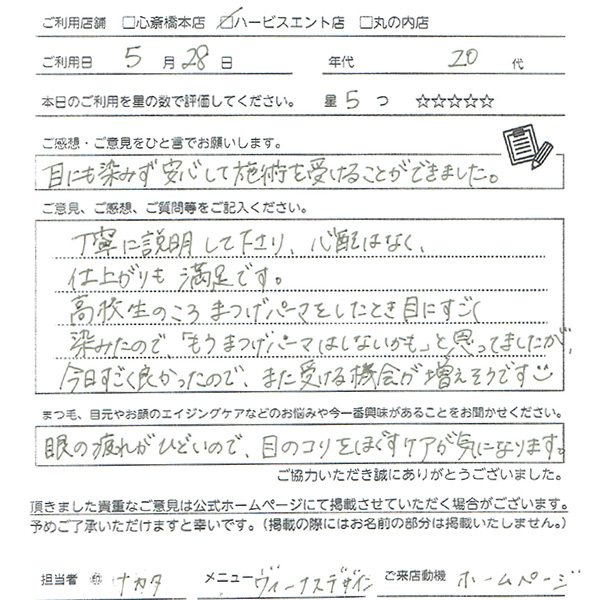 ご利用店舗 □心斎橋本店 ☑ハービスエント店 □丸の内店
ご利用日 5 月 28 日 年代 20 代
本日のご利用を星の数で評価してください。 星 5 つ ☆☆☆☆☆
ご感想・ご意見をひと言でお願いします。
目にも染みず安心して施術を受けることができました。
ご意見、ご感想、ご質問等をご記入ください。
丁寧に説明して下さり、心配はなく、
仕上がりも満足です。
高校生のころまつげパーマをしたとき目にすごく
染みたので、「もうまつげパーマはしないかも」と思ってましたが、
今日すごく良かったので、また受ける機会が増えそうです☺
まつ毛、目元やお顔のエイジングケアなどのお悩みや今一番興味があることをお聞かせください。
眼の疲れがひどいので、目のコリをほぐすケアが気になります。
ご協力いただき誠にありがとうございました。
頂きました貴重なご意見は公式ホームページにて掲載させていただく場合がございます。
予めご了承いただけますと幸いです。（掲載の際にはお名前の部分は掲載いたしません。）
担当者 ナカタ メニュー ヴィーナスデザイン ご来店動機 ホームページ